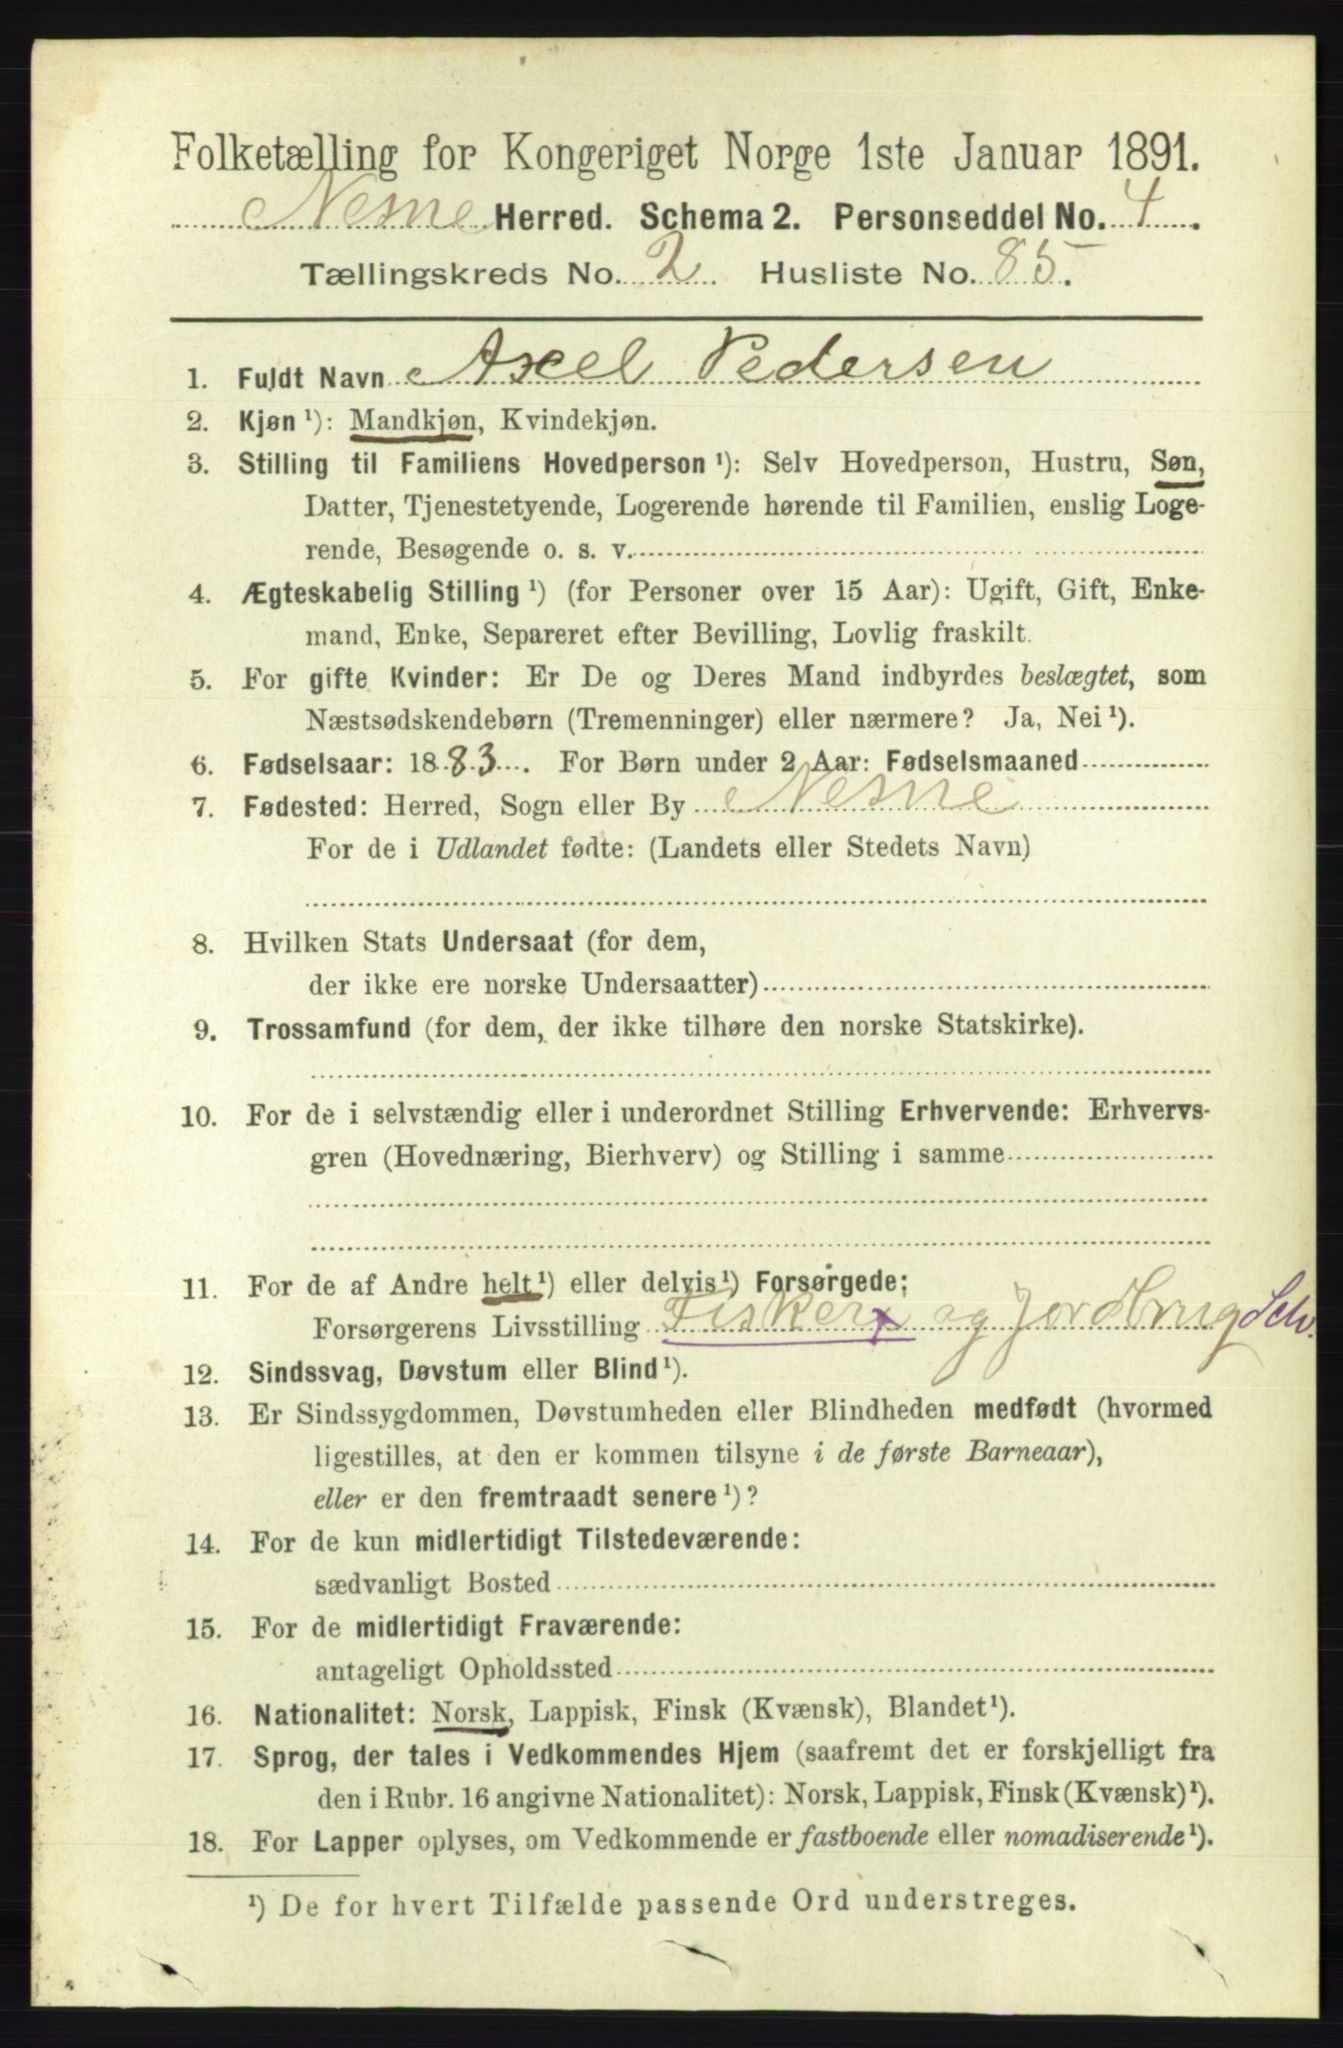 Folketælling for Kongeriget Norge 1ste Januar 1891.
Nesne Herred. Schema 2. Personseddel No. 4.
Tællingskreds No. 2. Husliste No. 85.
1. Fuldt Navn Axel Pedersen
2. Kjøn ¹): Mandkjøn, Kvindekjøn.
3. Stilling til Familiens Hovedperson ¹): Selv Hovedperson, Hustru, Søn,
Datter, Tjenestetyende, Logerende hørende til Familien, enslig Loge-
rende, Besøgende o. s. v.
4. Ægteskabelig Stilling ¹) (for Personer over 15 Aar): Ugift, Gift, Enke-
mand, Enke, Separeret efter Bevilling, Lovlig fraskilt.
5. For gifte Kvinder: Er De og Deres Mand indbyrdes beslægtet, som
Næstsødskendebørn (Tremenninger) eller nærmere? Ja, Nei ¹).
6. Fødselsaar: 1883. For Børn under 2 Aar: Fødselsmaaned
7. Fødested: Herred, Sogn eller By Nesne
For de i Udlandet fødte: (Landets eller Stedets Navn)
8. Hvilken Stats Undersaat (for dem,
der ikke ere norske Undersaatter)
9. Trossamfund (for dem, der ikke tilhøre den norske Statskirke).
10. For de i selvstændig eller i underordnet Stilling Erhvervende: Erhvervs-
gren (Hovednæring, Bierhverv) og Stilling i samme
11. For de af Andre helt ¹) eller delvis ¹) Forsørgede:
Forsørgerens Livsstilling Fisker x og Jordbrug Selv.
12. Sindssvag, Døvstum eller Blind ¹).
13. Er Sindssygdommen, Døvstumheden eller Blindheden medfødt (hvormed
ligestilles, at den er kommen tilsyne i de første Barneaar),
eller er den fremtraadt senere ¹)?
14. For de kun midlertidigt Tilstedeværende:
sædvanligt Bosted
15. For de midlertidigt Fraværende:
antageligt Opholdssted
16. Nationalitet: Norsk, Lappisk, Finsk (Kvænsk), Blandet ¹).
17. Sprog, der tales i Vedkommendes Hjem (saafremt det er forskjelligt fra
den i Rubr. 16 angivne Nationalitet): Norsk, Lappisk, Finsk (Kvænsk) ¹).
18. For Lapper oplyses, om Vedkommende er fastboende eller nomadiserende ¹).
¹) De for hvert Tilfælde passende Ord understreges.